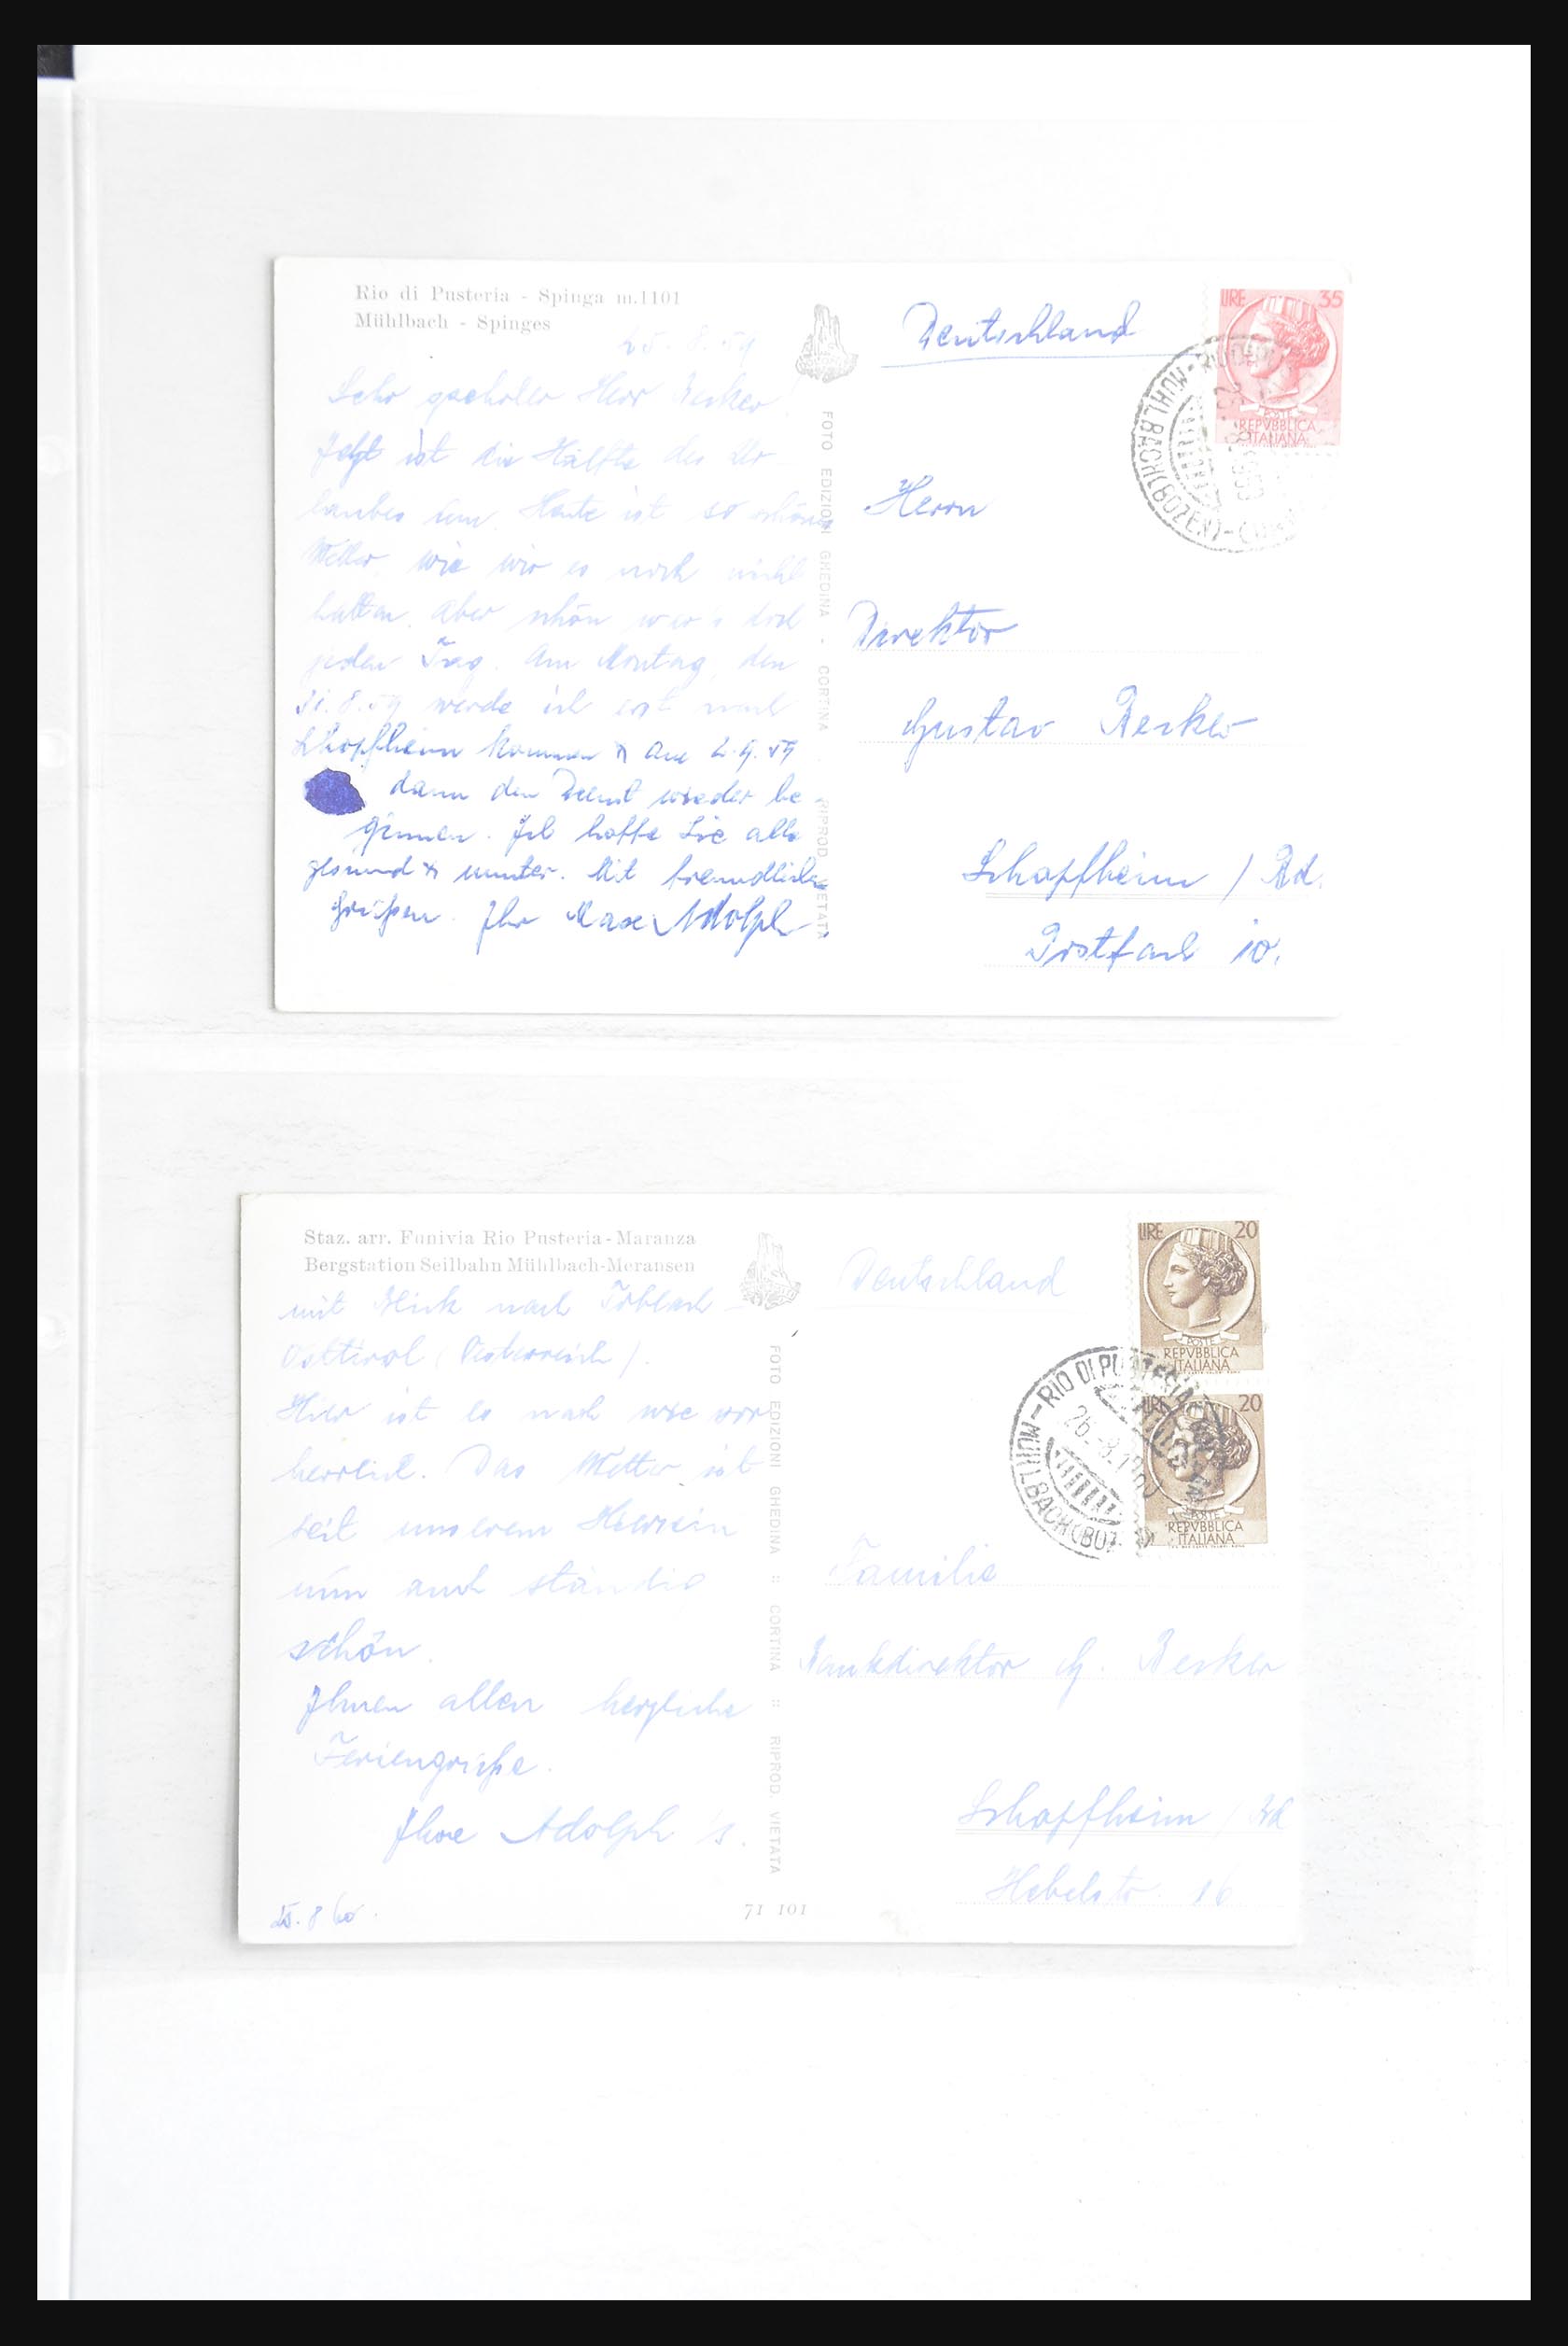 Rio di Pusteria - Spinga m.1101
Mühlbach - Spinges
25.8.59
Sehr geehrter Herr Becker!
Jetzt ist die Hälfte des Ur-
laubes um. Heute ist so schönes
Wetter, wie wir es noch nicht
hatten. Aber schön war's doch
jeden Tag. Am Montag, den
31.8.59 werde ich erst nach
Schopfheim kommen & am 2.9.59
dann den Dienst wieder be
ginnen. Ich hoffe Sie alle
gesund & munter. Mit freundlichen
Grüßen. Ihr Adolph
FOTO EDIZIONI GHEDINA - CORTINA
RIPROD. VIETATA
Deutschland
LIRE 35
POSTE
REPVBBLICA
ITALIANA
MÜHLBACH (BOZEN)
Herrn
Direktor
Gustav Becker
Schopfheim / Bd.
Postfach 10.
Staz. arr. Funivia Rio Pusteria - Maranza
Bergstation Seilbahn Mühlbach-Meransen
mit Blick nach Toblach
Osttirol (Österreich).
Hier ist es nach wie vor
herrlich. Das Wetter ist
seit unserem Hiersein
nun auch ständig
schön.
Ihnen allen herzliche
Feriengrüße.
Ihre Adolph's.
25.8.60.
71 101
FOTO EDIZIONI GHEDINA :: CORTINA :: RIPROD. VIETATA
Deutschland
LIRE 20
POSTE
REPVBBLICA
ITALIANA
LIRE 20
POSTE
REPVBBLICA
ITALIANA
MÜHLBACH (BOZ - RIO DI PUSTERIA
26.-8.1960
Familie
Bankdirektor G. Becker
Schopfheim / Bd
Hebelstr. 16